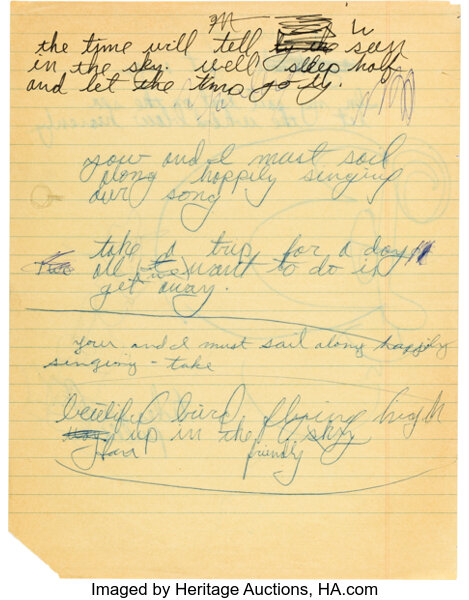 the time will tell by the sun
in the sky. we'll sleep half
and let the time go by.
your and I must sail
along happily singing
our song
take a trip for a day
all we want to do is
get away.
your and I must sail along happily
singing - take
beutiful bird flying high
up in the sky
friendly
Imaged by Heritage Auctions, HA.com